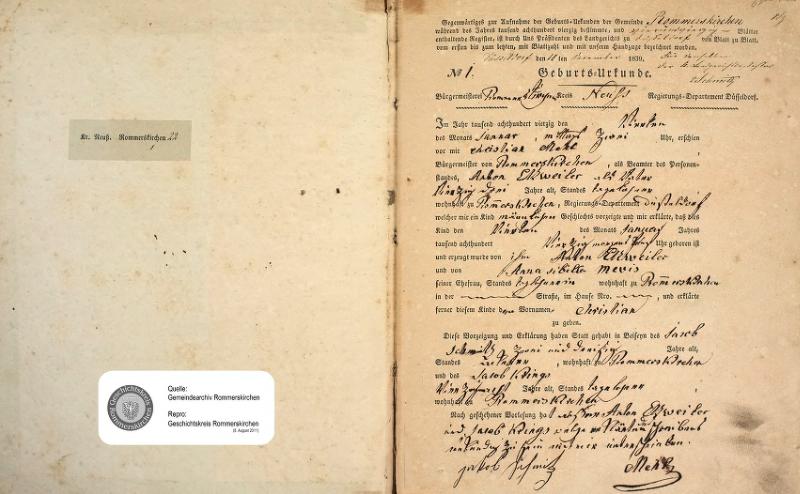 Kr. Neuß. Rommerskirchen 22
1
Quelle:
Gemeindearchiv Rommerskirchen
Repro:
Geschichtskreis Rommerskirchen
(8. August 2011)
Geschichtskreis
Rommerskirchen
Gegenwärtiges zur Aufnahme der Geburts-Urkunden der Gemeinde Rommerskirchen
während des Jahres tausend achthundert vierzig bestimmte, und Blätter
enthaltende Register, ist durch Uns Präsidenten des Landgerichts zu Düsseldorf von Blatt zu Blatt,
vom ersten bis zum letzten, mit Blattzahl und mit unserm Handzuge bezeichnet worden.
Düsseldorf den 1839.
Schmitz
No 1. Geburts-Urkunde.
Bürgermeisterei Rommerskirchen Kreis Neuss Regierungs-Departement Düsseldorf.
Im Jahr tausend achthundert vierzig den Vierten
des Monats Januar, mittags Zwei Uhr, erschien
vor mir Christian Mehl,
Bürgermeister von Rommerskirchen, als Beamter des Personen-
standes, Anton Ekweiler als Vater
Vierzig drei Jahre alt, Standes tagelohner
wohnhaft zu Rommerskirchen, Regierungs-Departement Düsseldorf
welcher mir ein Kind männlichen Geschlechts vorzeigte und mir erklärte, daß dies
Kind den Vierten des Monats Januar Jahres
tausend achthundert Vierzig morgens fünf Uhr geboren ist
und erzeugt wurde von ihm Anton Ekweiler
und von Anna Sibilla Mevis
seiner Ehefrau, Standes wohnhaft zu Rommerskirchen
in der Straße, im Hause Nro. , und erklärte
ferner diesem Kinde den Vornamen Christian
zu geben.
Diese Vorzeigung und Erklärung haben Statt gehabt in Beiseyn des Jacob
Schmitz Zwei und dreisig Jahre alt,
Standes , wohnhaft zu Rommerskirchen
und des Jacob Krings
Jahre alt, Standes tagelohner
wohnhaft zu Rommerskirchen
Nach geschehener Vorlesung hat Anton Ekweiler
und Jacob Krings
unterschrieben.
Jacob Schmitz Mehl